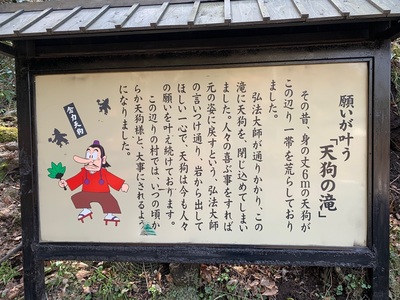 願いが叶う
「天狗の滝」
その昔、身の丈6mの天狗が
この辺り一帯を荒らしており
ました。
弘法大師が通りかかり、この
滝に天狗を、閉じ込めてしまい
ました。人々の喜ぶ事をすれば
元の姿に戻すという、弘法大師
の言いつけ通り、岩から出して
ほしい一心で、天狗は今も人々
の願いを叶え続けております。
この辺りの村では、いつの頃か
らか天狗様と、大事にされるよう
になりました。
合力天狗